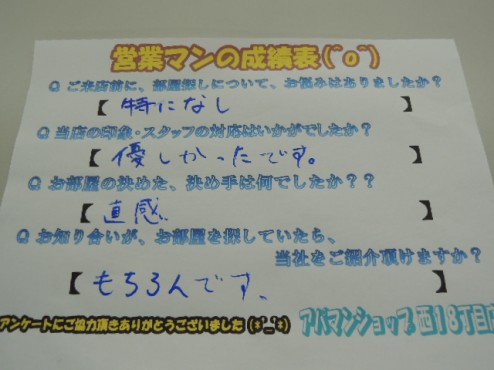 営業マンの成績表(^o^)
Q ご来店前に、部屋探しについて、お悩みはありましたか？
【 特になし 】
Q 当店の印象・スタッフの対応はいかがでしたか？
【 優しかったです。 】
Q お部屋の決めた、決め手は何でしたか？？
【 直感、 】
Q お知り合いが、お部屋を探していたら、
当社をご紹介頂けますか？
【 もちろんです、 】
アンケートにご協力頂きありがとうございました(*^_^*)
アパマンショップ 西18丁目店